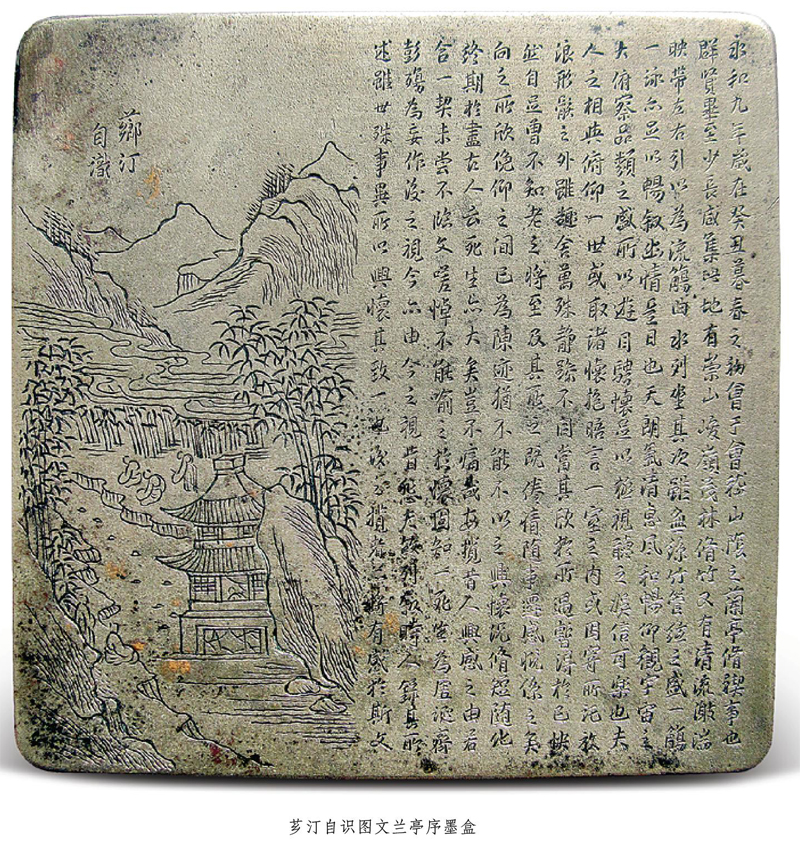 永和九年歲在癸丑暮春之初會于會稽山陰之蘭亭脩禊事也
群賢畢至少長咸集此地有崇山峻嶺茂林脩竹又有清流激湍
映帶左右引以為流觴曲水列坐其次雖無絲竹管弦之盛一觴
一詠亦足以暢敘幽情是日也天朗氣清惠風和暢仰觀宇宙之
大俯察品類之盛所以遊目騁懷足以極視聽之娛信可樂也夫
人之相與俯仰一世或取諸懷抱晤言一室之內或因寄所託放
浪形骸之外雖趣舍萬殊靜躁不同當其欣於所遇暫得於己快
然自足曾不知老之將至及其所之既倦情隨事遷感慨係之矣
向之所欣俛仰之間已為陳迹猶不能不以之興懷況脩短隨化
終期於盡古人云死生亦大矣豈不痛哉每攬昔人興感之由若
合一契未嘗不臨文嗟悼不能喻之於懷固知一死生為虛誕齊
彭殤為妄作後之視今亦由今之視昔悲夫故列敘時人錄其所
述雖世殊事異所以興懷其致一也後之攬者亦將有感於斯文
薌汀
自識
芗汀自识图文兰亭序墨盒